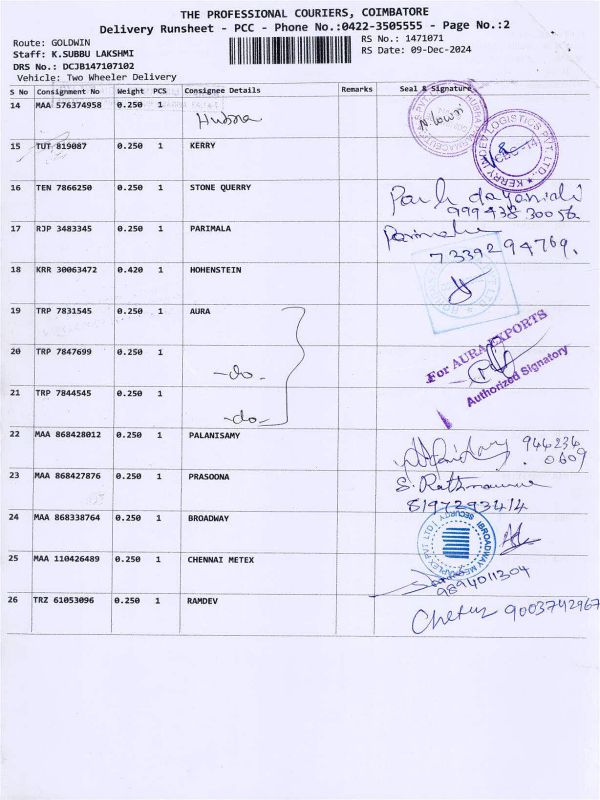 THE PROFESSIONAL COURIERS, COIMBATORE
Delivery Runsheet - PCC - Phone No.:0422-3505555 - Page No.:2
Route: GOLDWIN
RS No.: 1471071
Staff: K.SUBBU LAKSHMI
RS Date: 09-Dec-2024
DRS No.: DCJB147107102
Vehicle: Two Wheeler Delivery
S No Consignment No Weight PCS Consignee Details Remarks Seal & Signature
14 MAA 576374958 0.250 1
15 TUT 819087 0.250 1 KERRY
KERRY INDEV LOGISTICS PVT. LTD.
16 TEN 7866250 0.250 1 STONE QUERRY
17 RJP 3483345 0.250 1 PARIMALA Parimala
7339294769.
18 KRR 30063472 0.420 1 HOHENSTEIN
19 TRP 7831545 0.250 1 AURA
For AURA EXPORTS
20 TRP 7847699 0.250 1
-do-
Authorized Signatory
21 TRP 7844545 0.250 1
-do-
22 MAA 868428012 0.250 1 PALANISAMY 944234
0609
23 MAA 868427876 0.250 1 PRASOONA
8197293414
24 MAA 868338764 0.250 1 BROADWAY
25 MAA 110426489 0.250 1 CHENNAI METEX
9894011304
26 TRZ 61053096 0.250 1 RAMDEV
9003742967